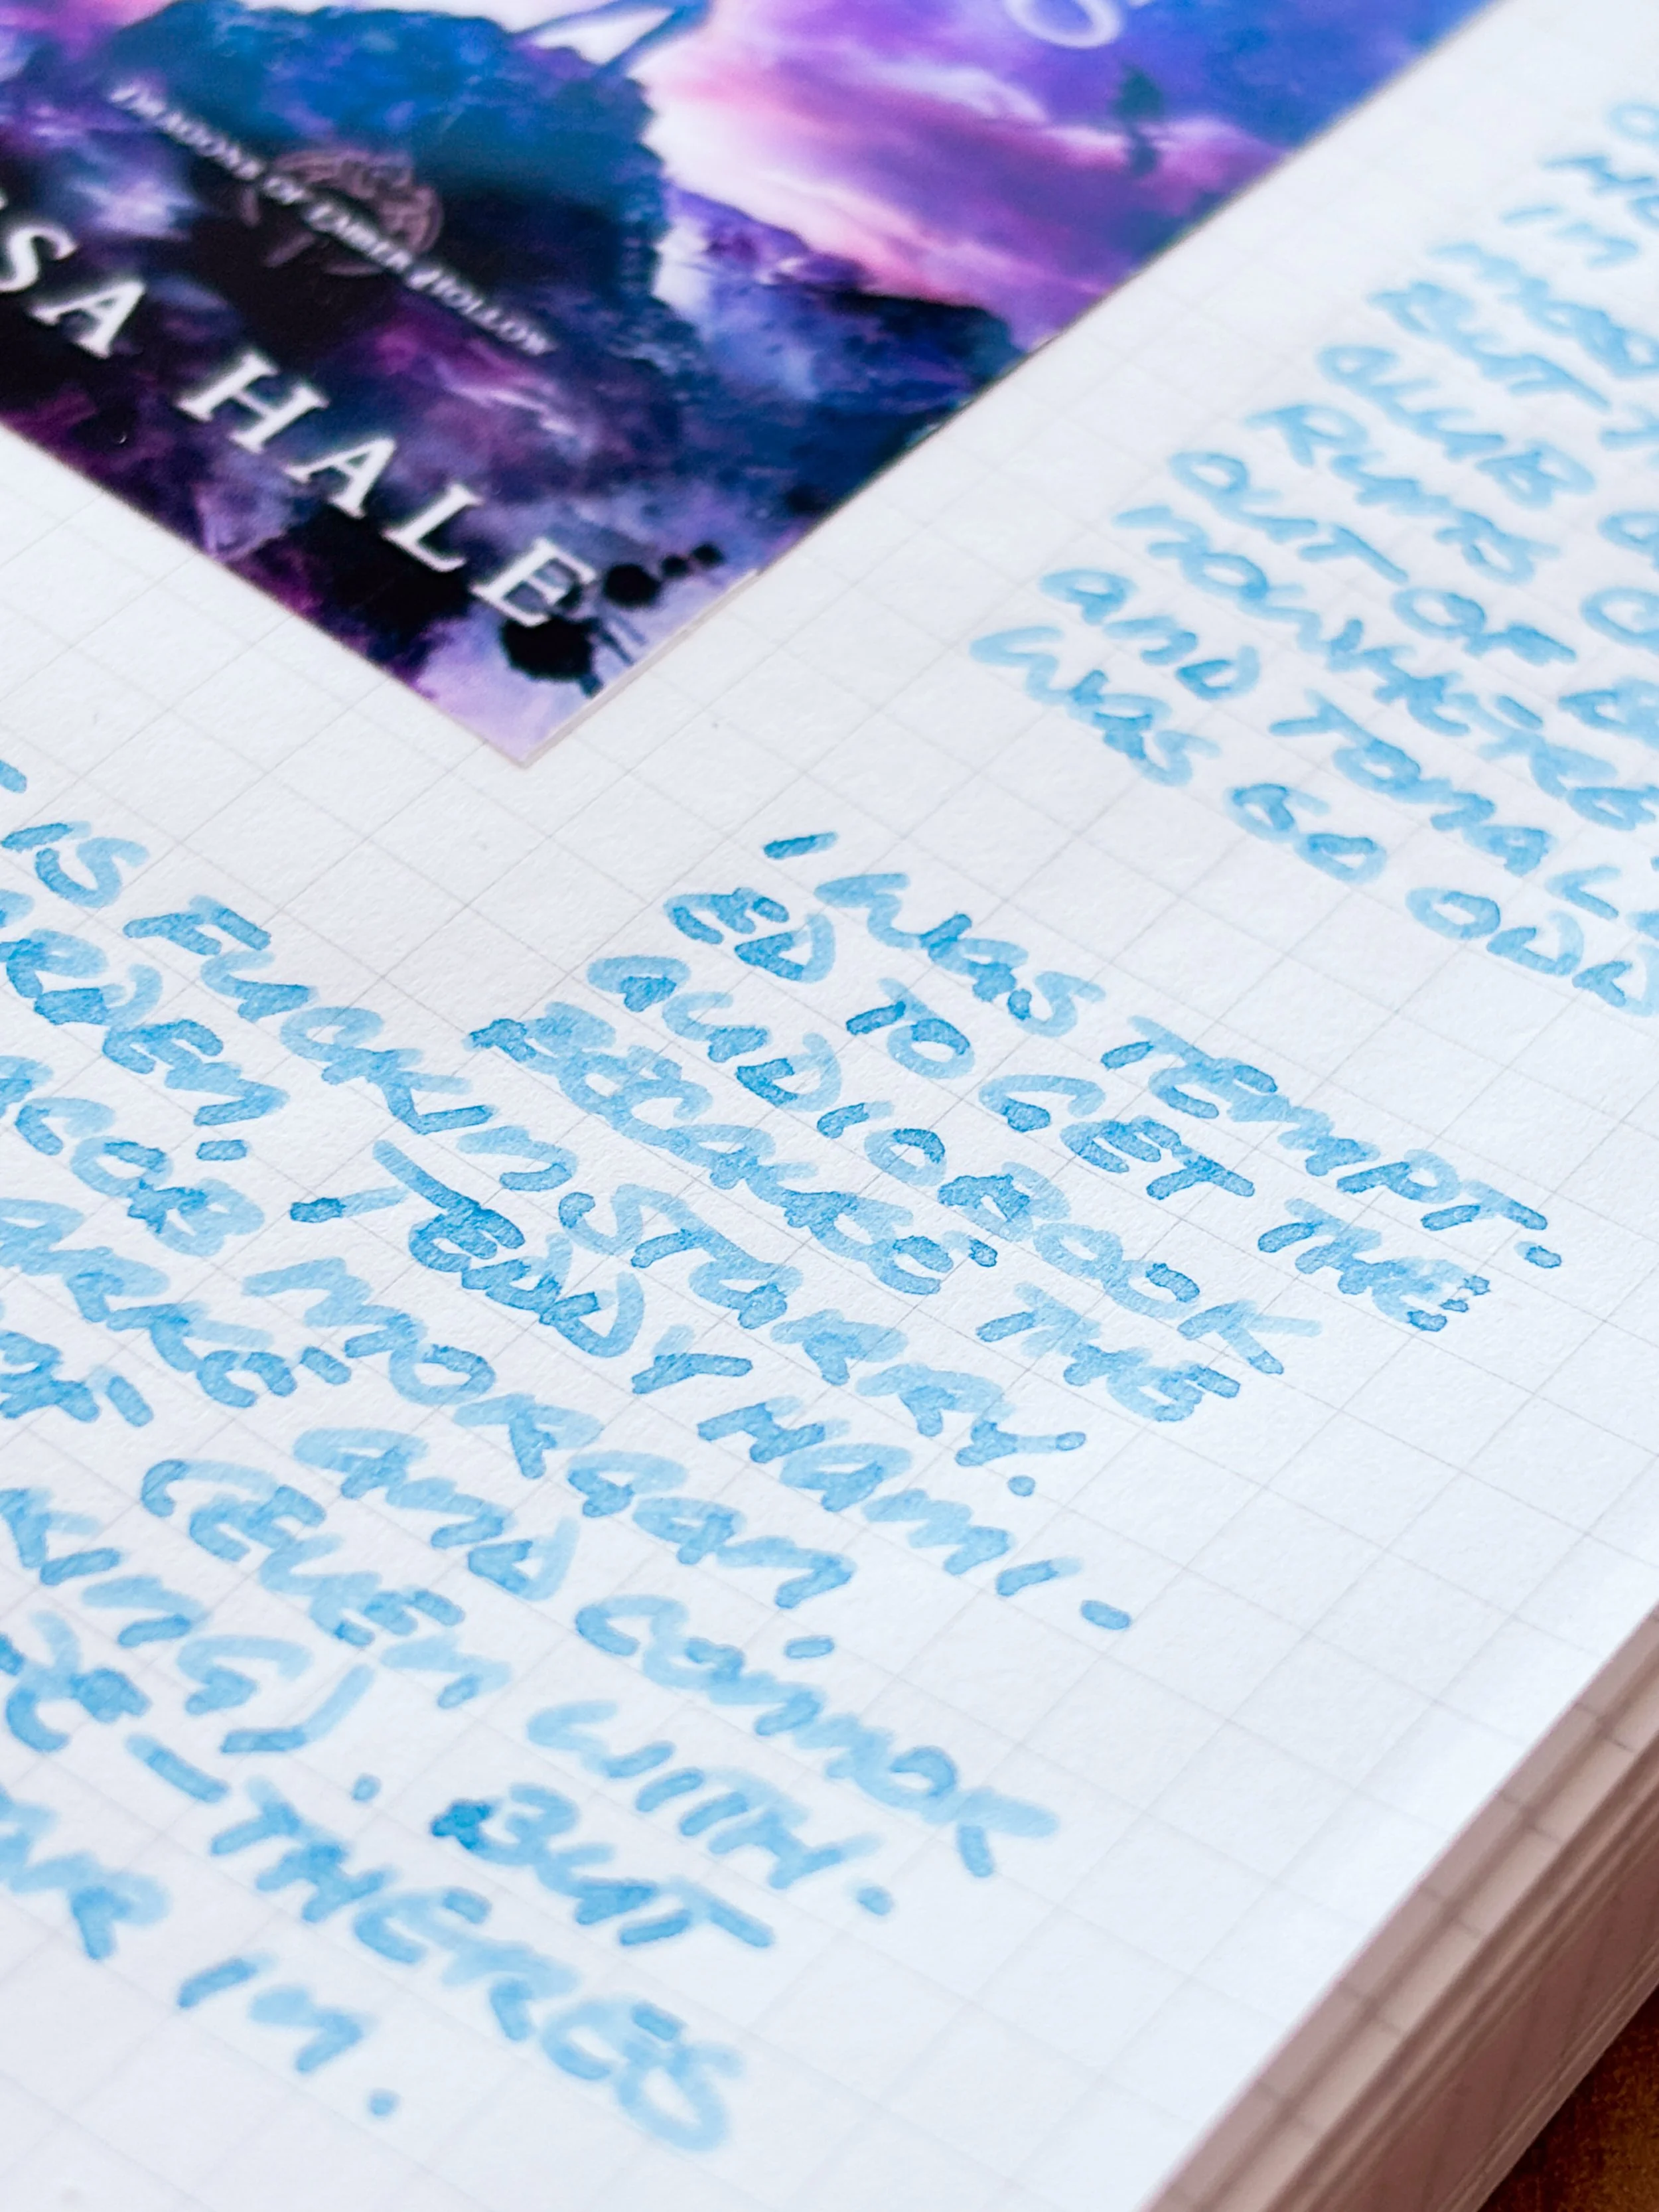 DRAGONS OF EMBER HOLLOW
SA HALE
IN
BUT
CLUB
RUNS
OUT OF
NOWHERE
AND TONAL
WAS SO ODD
I WAS TEMPT-
ED TO GET THE
AUDIOBOOK
BECAUSE THE
IS FUCKIN STARRY.
ARDEN. TEDDY HAMI-
ACOB MORGAN
LARKE AND CONNOR
OF (EVEN WITH.
KING). BUT
E — THERES
AR IN.